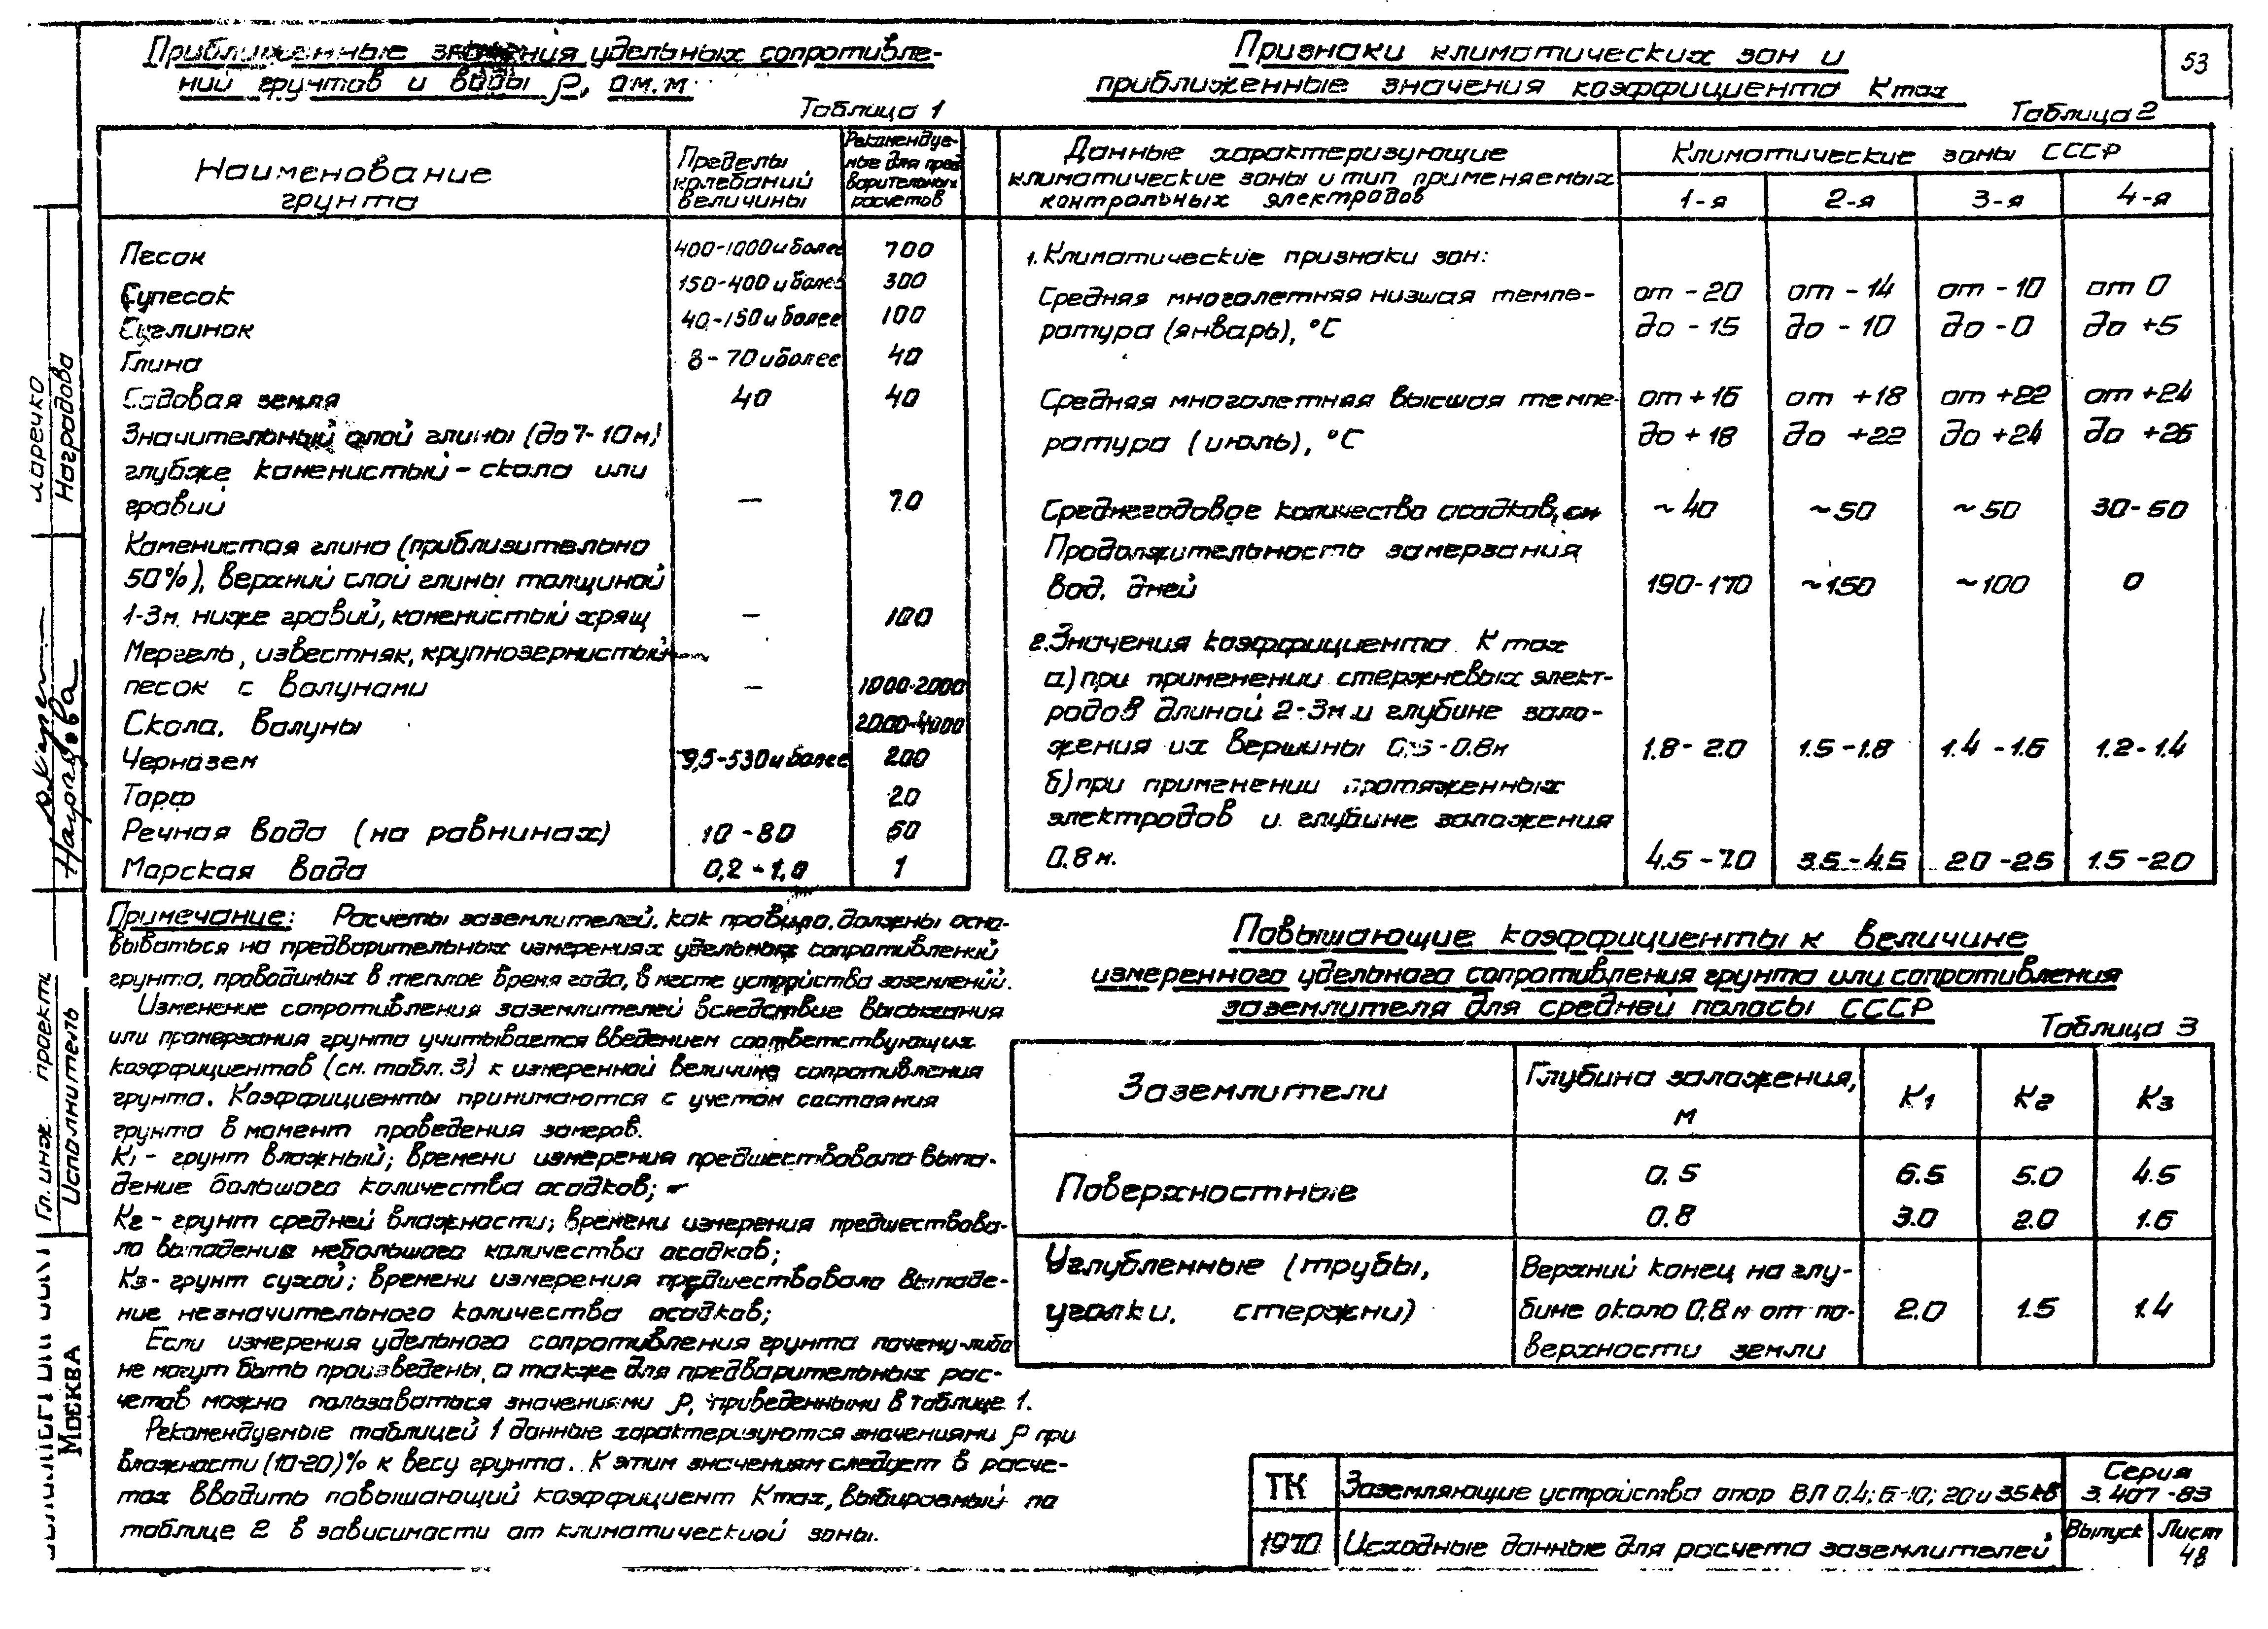 53
Приближенные значения удельных сопротивле-
ний грунтов и воды ρ, ом.м
Таблица 1
Наименование грунта | Пределы колебаний величины | Рекомендуе-мые для пред варительных расчетов
Песок 400-1000 и более 700
Супесок 150-400 и более 300
Суглинок 40-150 и более 100
Глина 8-70 и более 40
Садовая земля 40 40
Значительный слой глины (до 7-10м)
глубже каменистый - скала или
гравий — 70
Каменистая глина (приблизительно
50%), верхний слой глины толщиной
1-3м. ниже гравий, каменистый хрящ — 100
Мергель, известняк, крупнозернистый
песок с валунами — 1000-2000
Скала, валуны 2000-4000
Чернозем 9,5-530 и более 200
Торф 20
Речная вода (на равнинах) 10-80 50
Морская вода 0,2-1,0 1
Примечание: Расчеты заземлителей, как правило, должны осно-
вываться на предварительных измерениях удельных сопротивлений
грунта, проводимых в теплое время года, в месте устройства заземлений.
Изменение сопротивления заземлителей вследствие высыхания
или промерзания грунта учитывается введением соответствующих
коэффициентов (см. табл. 3) к измеренной величине сопротивления
грунта. Коэффициенты принимаются с учетом состояния
грунта в момент проведения замеров.
К1 - грунт влажный; времени измерения предшествовало выпа-
дение большого количества осадков;
К2 - грунт средней влажности; времени измерения предшествова-
ло выпадение небольшого количества осадков;
К3 - грунт сухой; времени измерения предшествовало выпаде-
ние незначительного количества осадков;
Если измерения удельного сопротивления грунта почему-либо
не могут быть произведены, а также для предварительных рас-
четов можно пользоваться значениями ρ, приведенными в таблице 1.
Рекомендуемые таблицей 1 данные характеризуются значениями ρ при
влажности (10-20)% к весу грунта. К этим значениям следует в расче-
тах вводить повышающий коэффициент Kmax, выбираемый по
таблице 2 в зависимости от климатической зоны.
Признаки климатических зон и
приближенные значения коэффициента Kmax
Таблица 2
Данные характеризующие климатические зоны и тип применяемых контрольных электродов | Климатические зоны СССР
1-я 2-я 3-я 4-я
1. Климатические признаки зон:
Средняя многолетняя низшая темпе- от -20 от -14 от -10 от 0
ратура (январь), °С до -15 до -10 до -0 до +5
Средняя многолетняя высшая темпе- от +16 от +18 от +22 от +24
ратура (июль), °С до +18 до +22 до +24 до +26
Среднегодовое количество осадков, см ~40 ~50 ~50 30-50
Продолжительность замерзания
вод, дней 190-170 ~150 ~100 0
2. Значения коэффициента Kmax
а) при применении стержневых элект-
родов длиной 2-3м и глубине зало-
жения их вершины 0,5-0.8м 1.8-2.0 1.5-1.8 1.4-1.6 1.2-1.4
б) при применении протяженных
электродов и глубине заложения
0.8м. 4.5-7.0 3.5-4.5 2.0-2.5 1.5-2.0
Повышающие коэффициенты к величине
измеренного удельного сопротивления грунта или сопротивления
заземлителя для средней полосы СССР
Таблица 3
Заземлители | Глубина заложения, м | К1 К2 К3
Поверхностные 0.5 6.5 5.0 4.5
0.8 3.0 2.0 1.6
Углубленные (трубы, Верхний конец на глу-
уголки, стержни) бине около 0,8м от по- 2.0 1.5 1.4
верхности земли
ТК Заземляющие устройства опор ВЛ 0.4; 6-10; 20 и 35 кв Серия 3.407-83
1970 Исходные данные для расчета заземлителей Выпуск Лист 48
Наградова
Гл. инж. проекта
Исполнитель
Москва